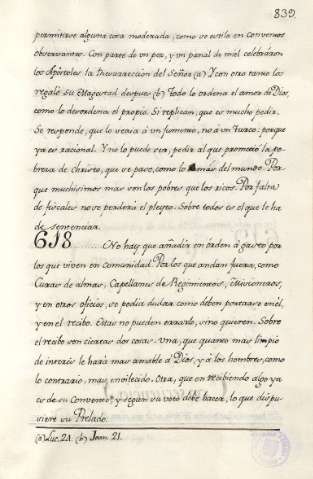 839.
permitirse alguna cosa moderada, como se estila en Conventos
observantes. Con parte de un pez, y un panal de miel celebraron
los Apostoles la Resurreccion del Señor (a) Y con otro tanto los
regalò su Magestad despues (b) Todo lo ordena el amor de Dios,
como lo desordena el propio. Si replican, que es mucho pedir.
Se responde, que lo seria à un jumento, no à un Turco: porque
ya es racional. Y no lo puede ser, pedir al que prometiò la po-
breza de Christo, que se pase, como lo más del mundo. Por
que muchisimos mas son los pobres que los ricos. Por falta
de fiscales no se perderà el pleyto. Sobre todos es el que le ha
de sentenciar.
618 No hay que añadir en orden à gasto por
los que viven en comunidad. Por los que andan fuera, como
Curas de almas, Capellanes de Regimientos, Misioneros,
y en otros oficios, se podia dudar como deben portarse en èl,
y en el recibo. Estas no pueden errarlo, sino quieren. Sobre
el recibo son ciertas dos cosas. Una, que quanto mas limpio
de interès le harà mas amable à Dios, y à los hombres, como
lo contrario, mas envilecido. Otra, que en recibiendo algo ya
es de su Convento, y segun su voto debe hacer, lo que dispu-
siere su Prelado.
(a) Luc. 24. (b) Joan. 21.